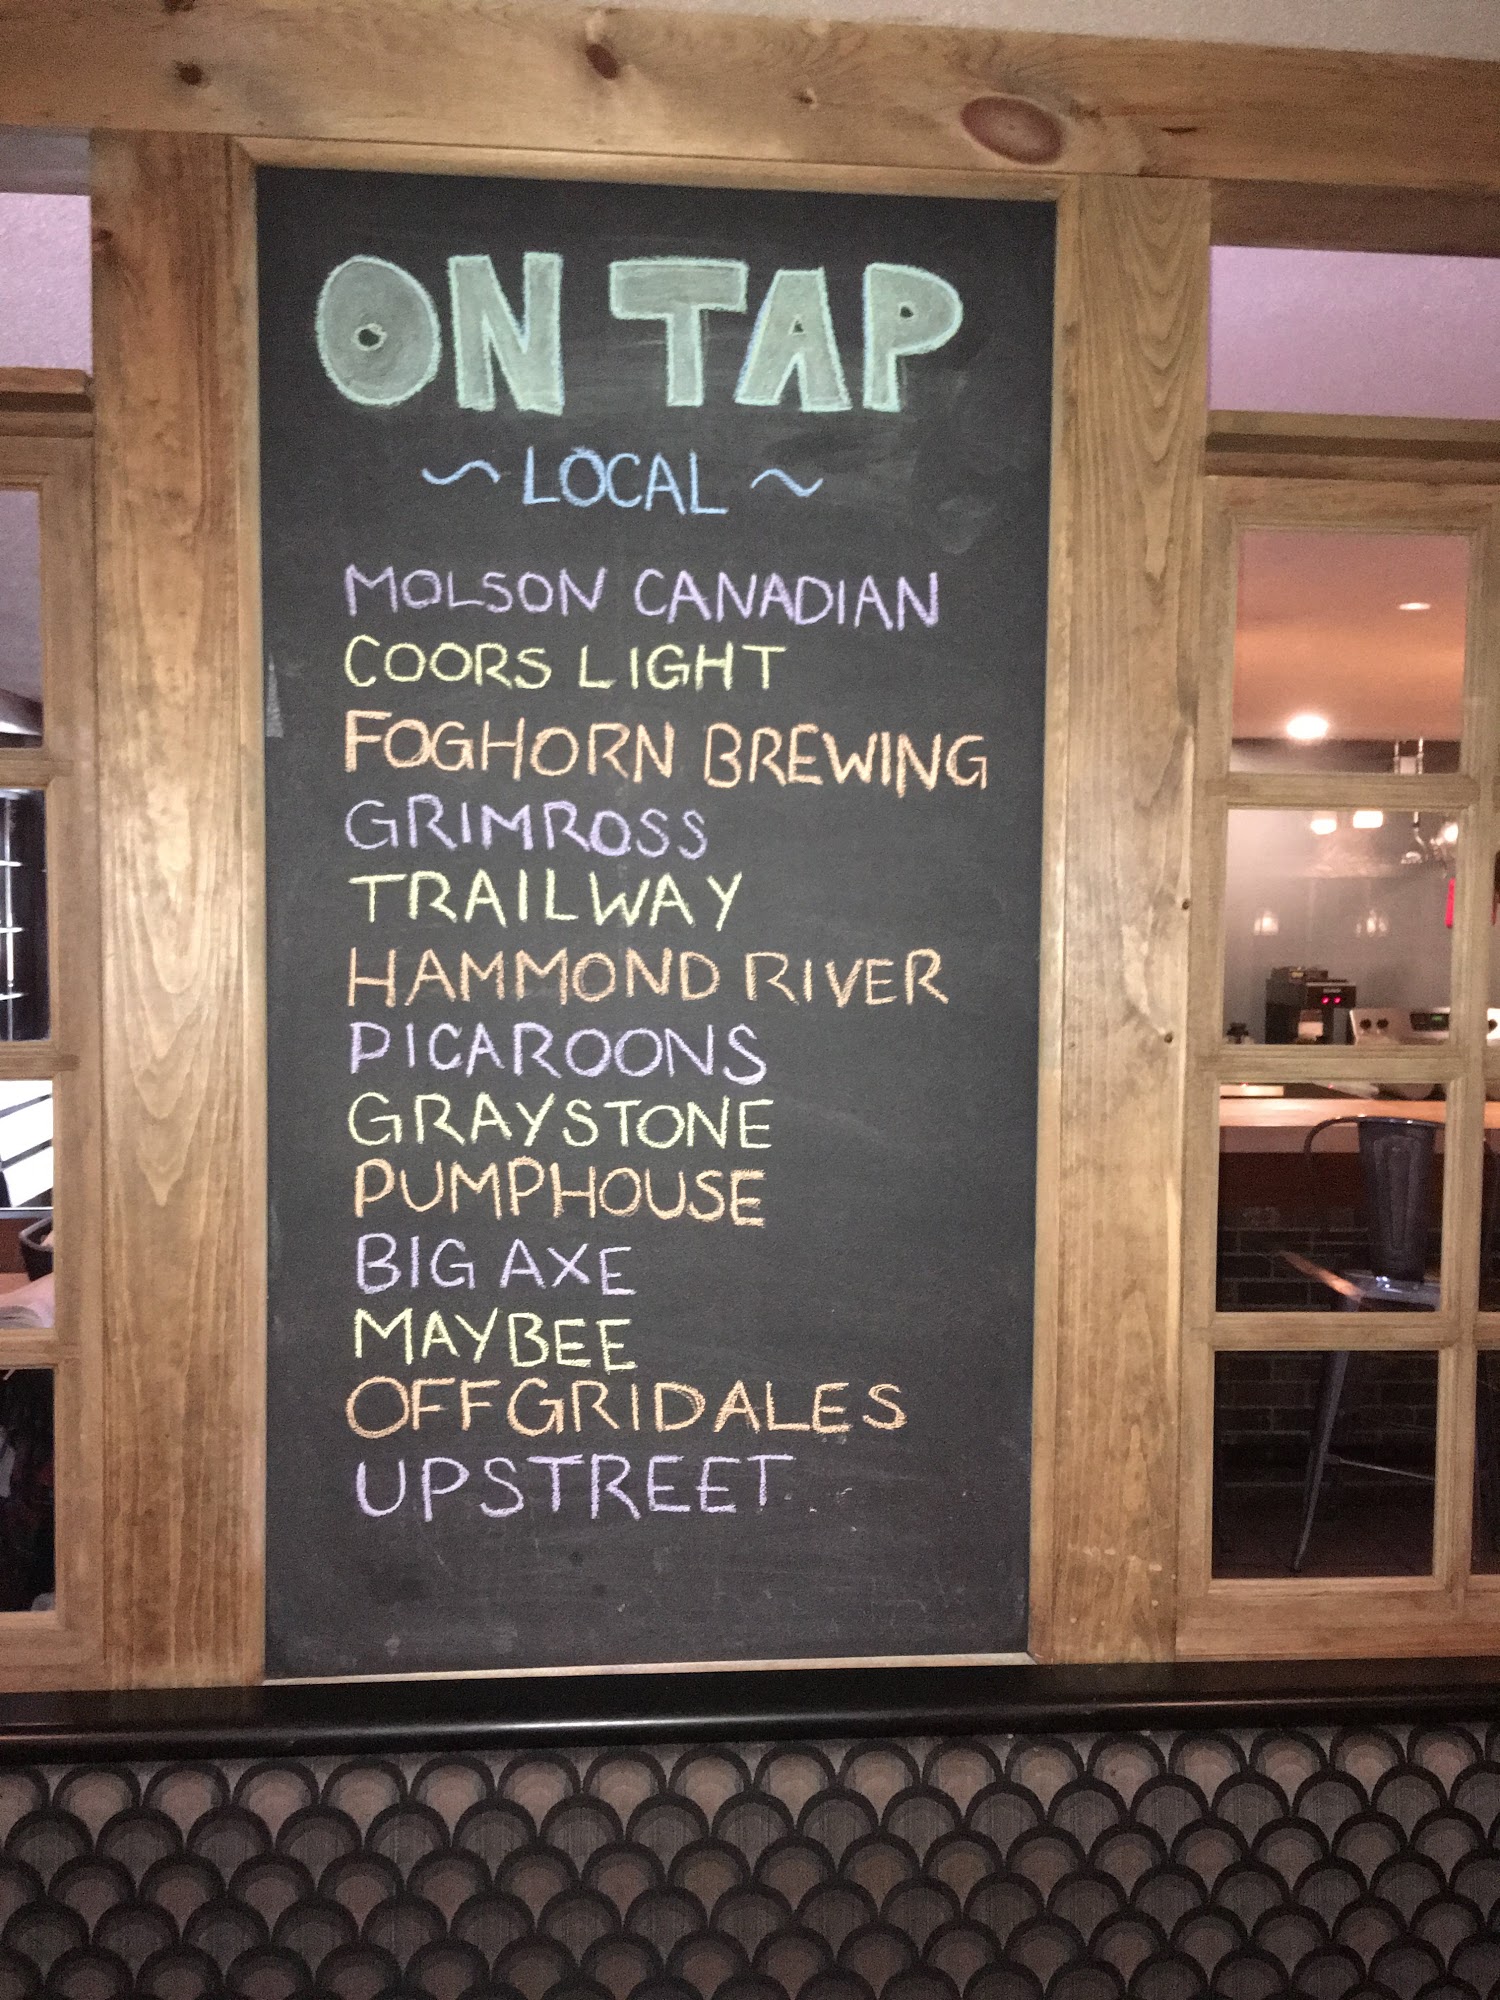 ON TAP
~ LOCAL ~
MOLSON CANADIAN
COORS LIGHT
FOGHORN BREWING
GRIMROSS
TRAILWAY
HAMMOND RIVER
PICAROONS
GRAYSTONE
PUMPHOUSE
BIG AXE
MAYBEE
OFFGRIDALES
UPSTREET